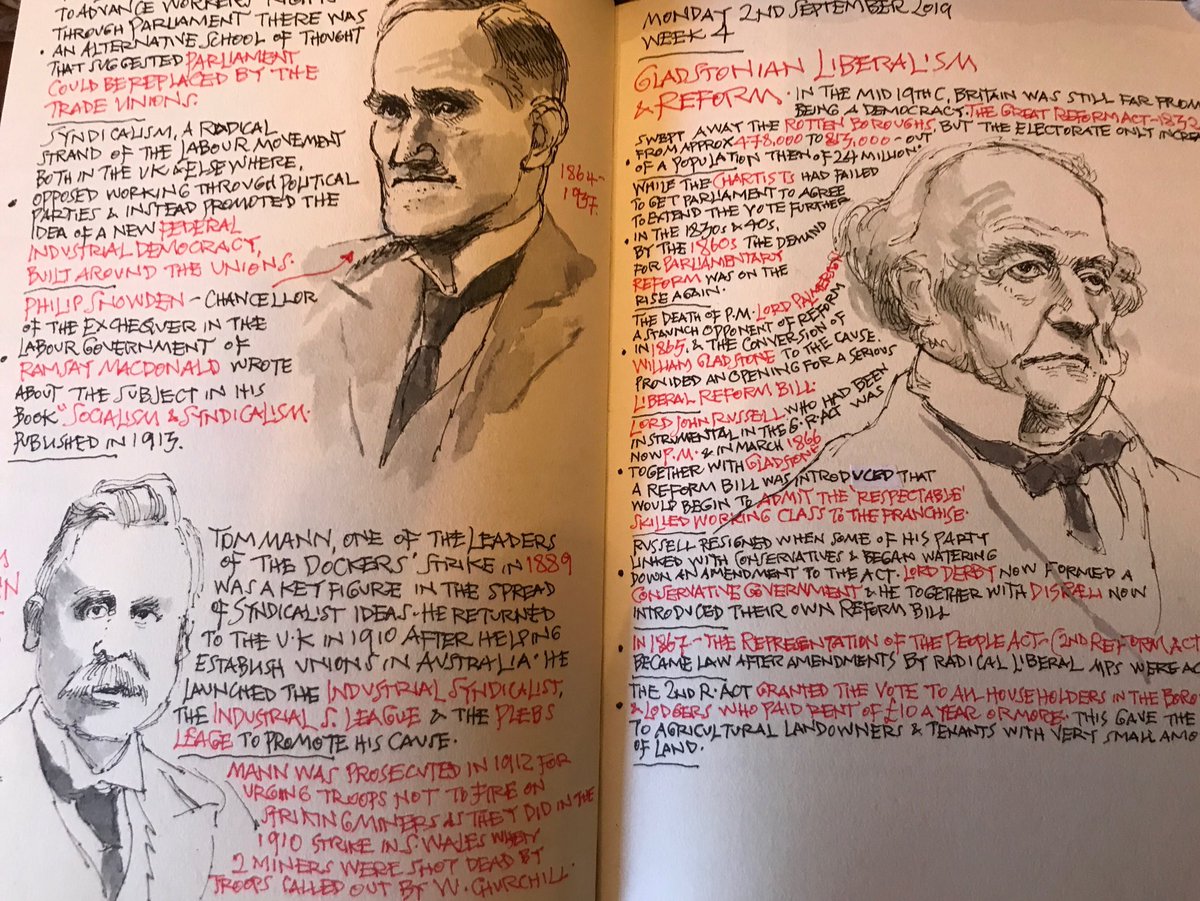 TO ADVANCE WORKERS'
THROUGH PARLIAMENT THERE WAS
AN ALTERNATIVE SCHOOL OF THOUGHT
THAT SUGGESTED PARLIAMENT
COULD BE REPLACED BY THE
TRADE UNIONS.
SYNDICALISM, A RADICAL
STRAND OF THE LABOUR MOVEMENT
BOTH IN THE UK & ELSEWHERE,
OPPOSED WORKING THROUGH POLITICAL
PARTIES & INSTEAD PROMOTED THE
IDEA OF A NEW FEDERAL
INDUSTRIAL DEMOCRACY,
BUILT AROUND THE UNIONS.
PHILIP SNOWDEN - CHANCELLOR
OF THE EXCHEQUER IN THE
LABOUR GOVERNMENT OF
RAMSAY MACDONALD WROTE
ABOUT THE SUBJECT IN HIS
BOOK "SOCIALISM & SYNDICALISM.
PUBLISHED IN 1913.
1864-
1937.
TOM MANN, ONE OF THE LEADERS
OF THE DOCKERS' STRIKE IN 1889
WAS A KEY FIGURE IN THE SPREAD
OF SYNDICALIST IDEAS. HE RETURNED
TO THE U.K IN 1910 AFTER HELPING
ESTABLISH UNIONS IN AUSTRALIA. HE
LAUNCHED THE INDUSTRIAL SYNDICALIST,
THE INDUSTRIAL S. LEAGUE & THE PLEBS
LEAGE TO PROMOTE HIS CAUSE.
MANN WAS PROSECUTED IN 1912 FOR
URGING TROOPS NOT TO FIRE ON
STRIKING MINERS AS THEY DID IN THE
1910 STRIKE IN S. WALES WHEN
2 MINERS WERE SHOT DEAD BY
TROOPS CALLED OUT BY W. CHURCHILL.
MONDAY 2ND SEPTEMBER 2019
WEEK 4
GLADSTONIAN LIBERALISM
& REFORM. IN THE MID 19TH C, BRITAIN WAS STILL FAR FROM
BEING A DEMOCRACY. THE GREAT REFORM ACT - 1832
SWEPT AWAY THE ROTTEN BOROUGHS, BUT THE ELECTORATE ONLY
FROM APPROX 478,000 TO 813,000 - OUT
OF A POPULATION THEN OF 24 MILLION.
WHILE THE CHARTISTS HAD FAILED
TO GET PARLIAMENT TO AGREE
TO EXTEND THE VOTE FURTHER
IN THE 1830S & 40S.
BY THE 1860S THE DEMAND
FOR PARLIAMENTARY
REFORM WAS ON THE
RISE AGAIN.
THE DEATH OF P.M. LORD PALMERSTON
A STAUNCH OPPONENT OF REFORM
IN 1865, & THE CONVERSION OF
WILLIAM GLADSTONE TO THE CAUSE.
PROVIDED AN OPENING FOR A SERIOUS
LIBERAL REFORM BILL.
LORD JOHN RUSSELL WHO HAD BEEN
INSTRUMENTAL IN THE G. R ACT WAS
NOW P.M. & IN MARCH 1866
TOGETHER WITH GLADSTONE
A REFORM BILL WAS INTRODUCED THAT
WOULD BEGIN TO ADMIT THE 'RESPECTABLE'
SKILLED WORKING CLASS TO THE FRANCHISE.
RUSSELL RESIGNED WHEN SOME OF HIS PARTY
LINKED WITH CONSERVATIVES & BEGAN WATERING
DOWN AN AMENDMENT TO THE ACT. LORD DERBY NOW FORMED A
CONSERVATIVE GOVERNMENT & HE TOGETHER WITH DISRAELI NOW
INTRODUCED THEIR OWN REFORM BILL
IN 1867 - THE REPRESENTATION OF THE PEOPLE ACT - (2ND REFORM ACT
BECAME LAW AFTER AMENDMENTS BY RADICAL LIBERAL MPS WERE
THE 2ND R. ACT GRANTED THE VOTE TO ALL HOUSEHOLDERS IN THE
& LODGERS WHO PAID RENT OF £10 A YEAR OR MORE. THIS GAVE THE
TO AGRICULTURAL LANDOWNERS & TENANTS WITH VERY SMALL
OF LAND.